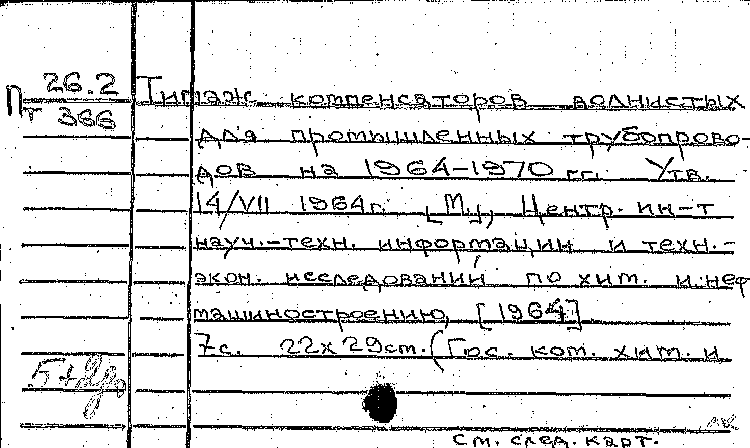 Пт 26.2
366
Типаж компенсаторов волнистых
для промышленных трубопрово-
дов на 1964-1970 гг. Утв.
14/VII 1964г. [М.], Центр. ин-т
науч.-техн. информации и техн.-
экон. исследований по хим. и неф
машиностроению, [1964].
7с. 22х29см. (Гос. ком. хим. и
см. след. карт.